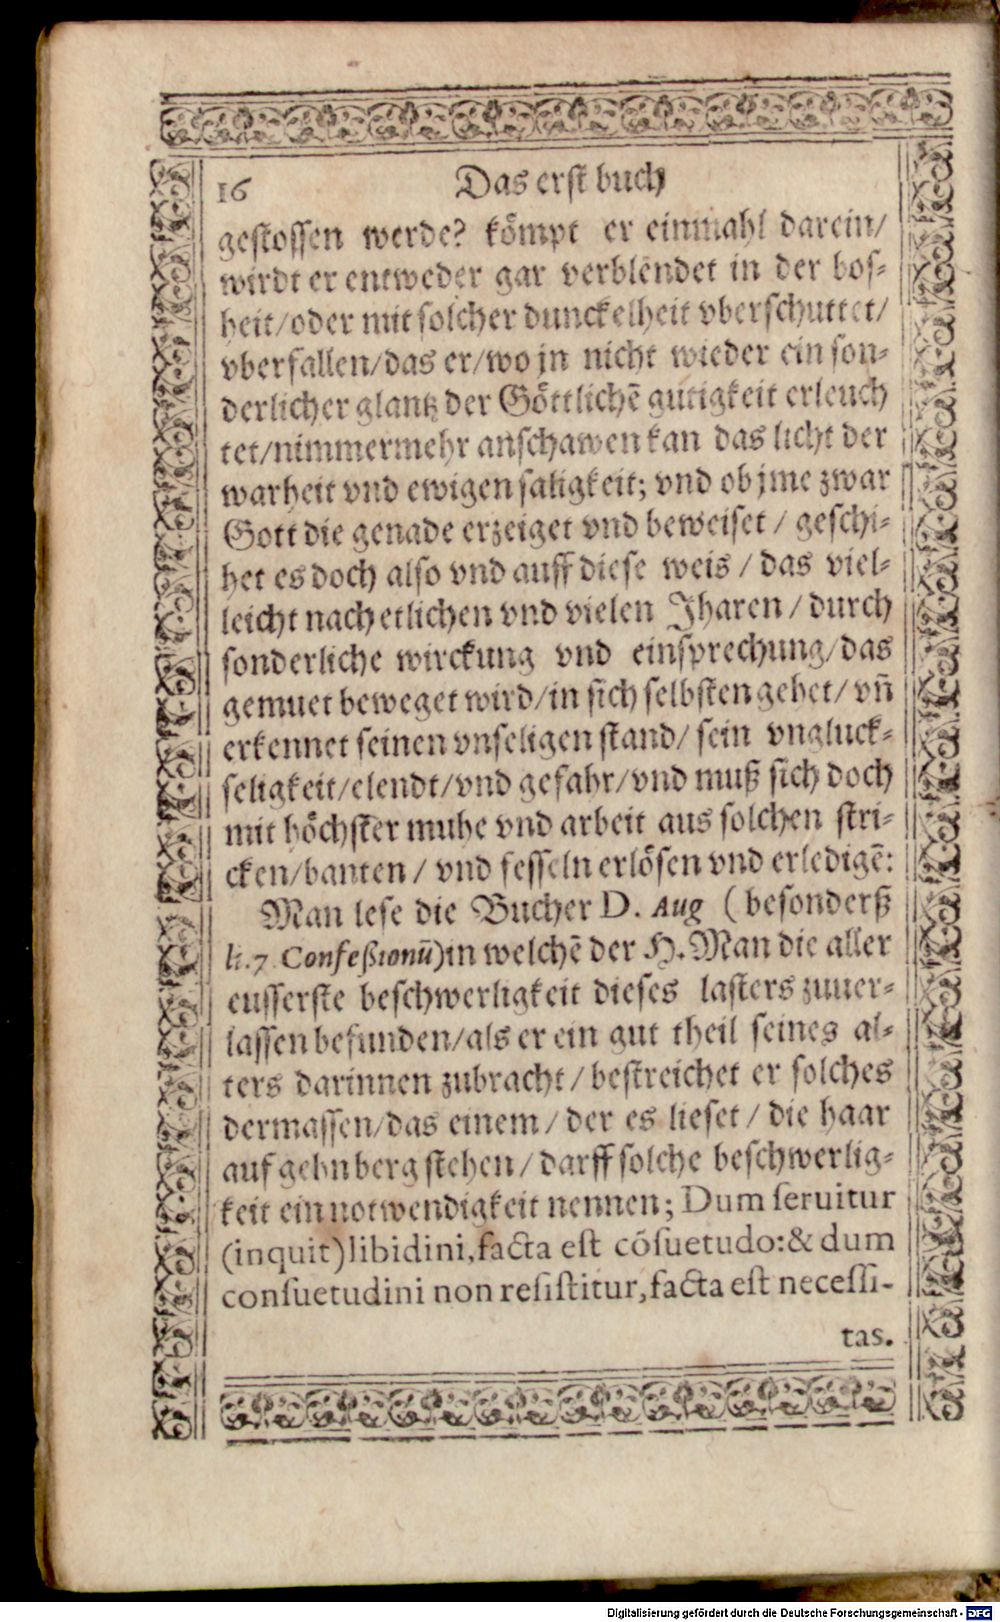 16 Das erst buch
gestossen werde? kömpt er einmahl darein/
wirdt er entweder gar verblendet in der bos-
heit/oder mit solcher dunckelheit vberschuttet/
vberfallen/das er/wo jn nicht wieder ein son-
derlicher glantz der Göttlichē gutigkeit erleuch
tet/nimmermehr anschawen kan das licht der
warheit vnd ewigen saligkeit; vnd ob jme zwar
Gott die genade erzeiget vnd beweiset / geschi-
het es doch also vnd auff diese weis / das viel-
leicht nach etlichen vnd vielen Jharen / durch
sonderliche wirckung vnd einsprechung/das
gemuet beweget wird/in sich selbsten gehet/ vn̄
erkennet seinen vnseligen stand/ sein vngluck-
seligkeit/elendt/vnd gefahr/vnd muß sich doch
mit höchster muhe vnd arbeit aus solchen stri-
cken/banten / vnd fesseln erlösen vnd erledigē:
Man lese die Bucher D. Aug ( besonderß
li.7 Confeßionū)in welchē der H. Man die aller
eusserste beschwerligkeit dieses lasters zuuer-
lassen befunden/als er ein gut theil seines al-
ters darinnen zubracht / bestreichet er solches
dermassen/das einem / der es lieset / die haar
auf gehn berg stehen / darff solche beschwerlig-
keit ein notwendigkeit nennen; Dum seruitur
(inquit) libidini, facta est cōsuetudo: & dum
consuetudini non resistitur, facta est necessi-
tas.
Digitalisierung gefördert durch die Deutsche Forschungsgemeinschaft - DFG